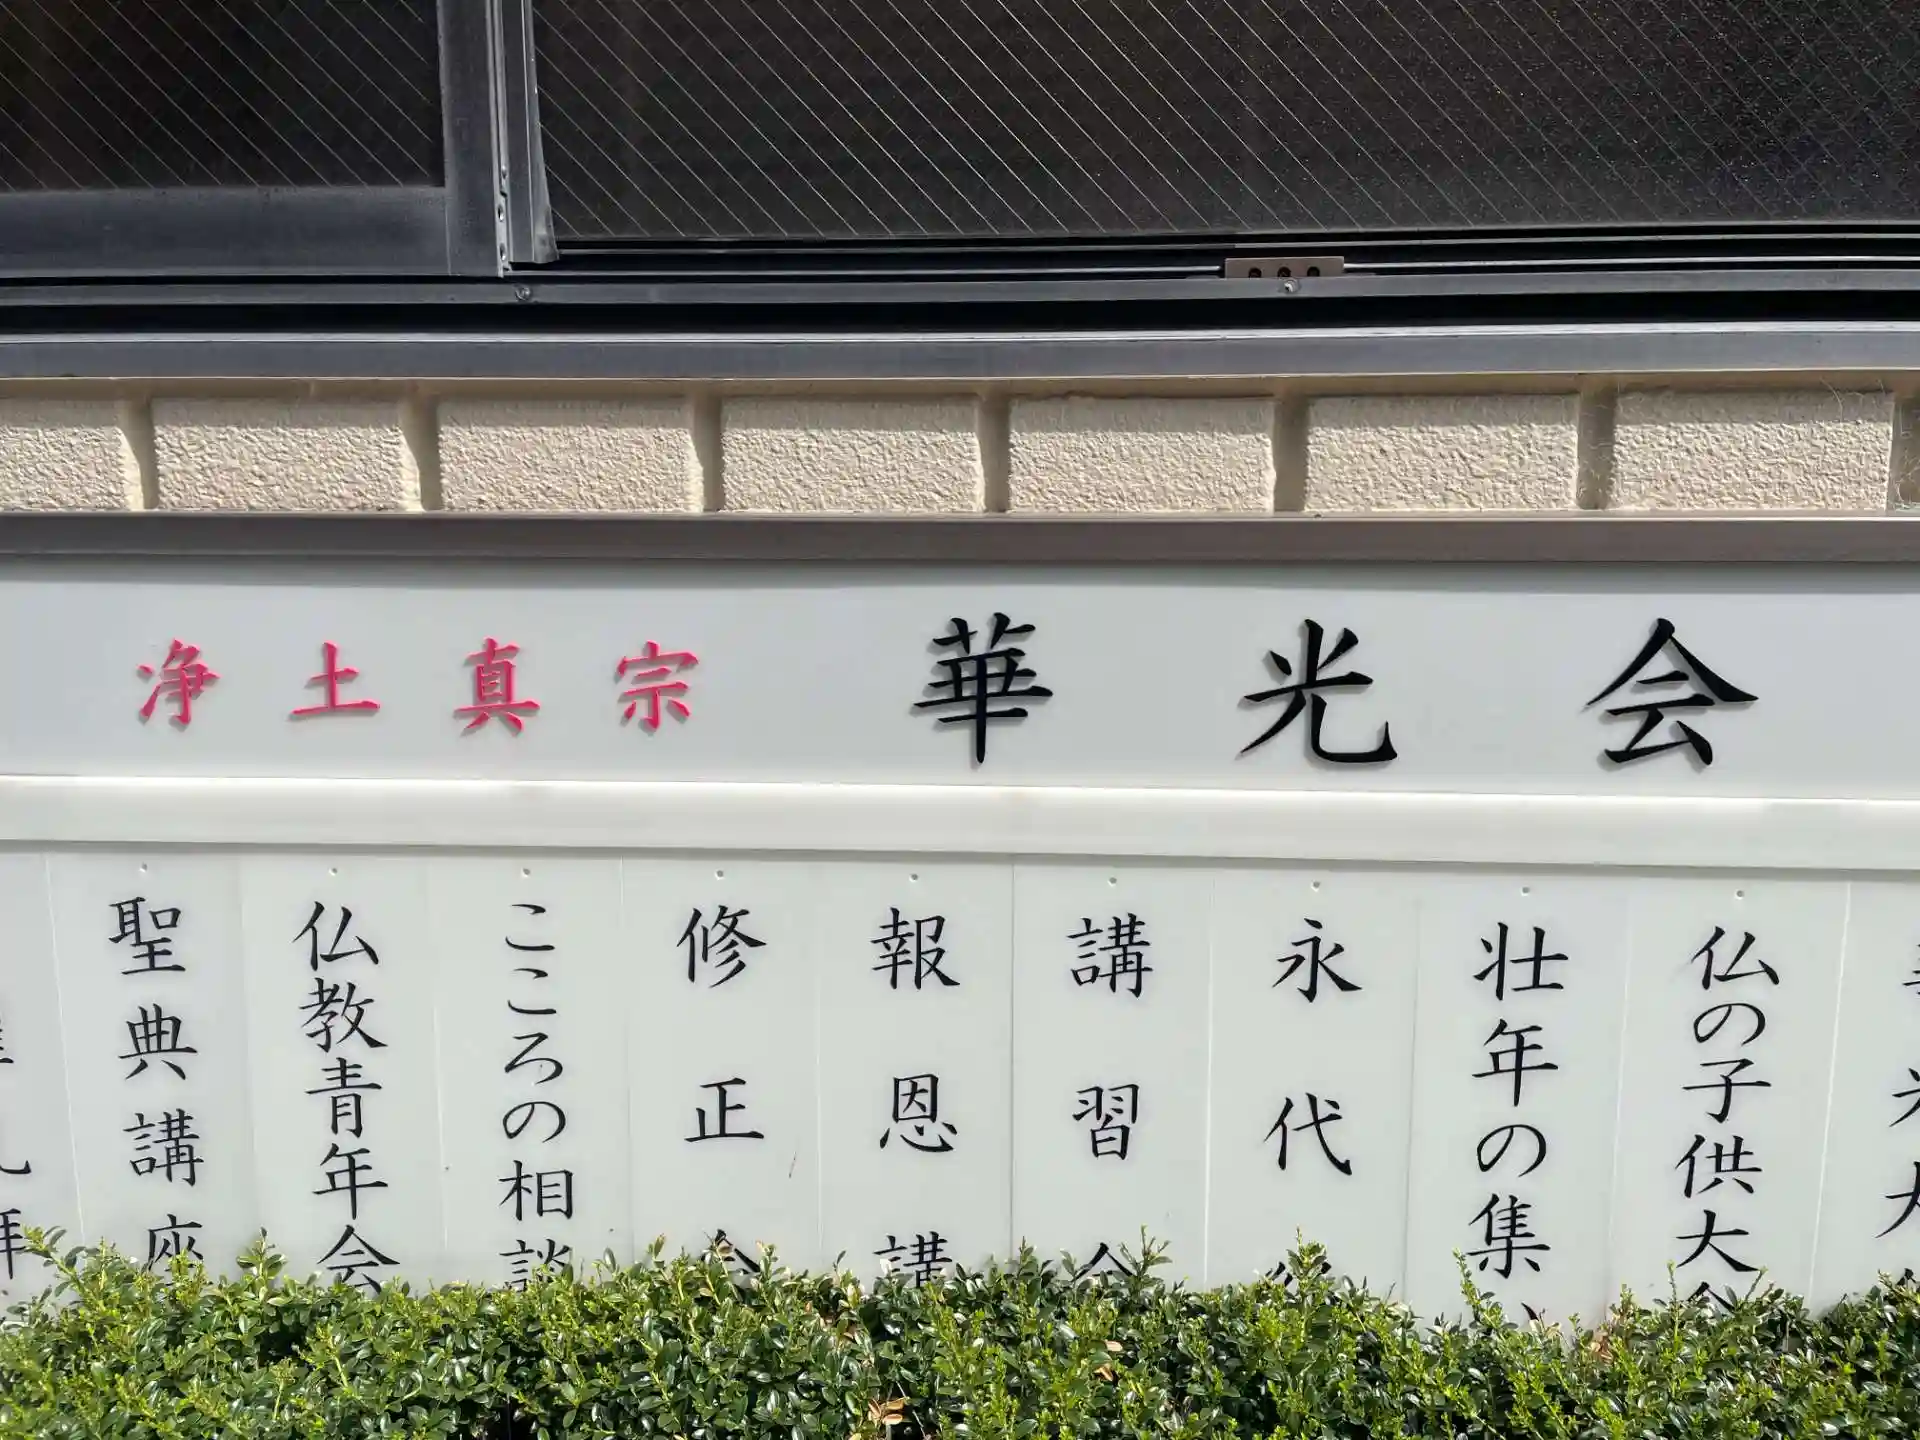 浄土真宗 華光会
聖典講座
仏教青年会
こころの相談
修正会
報恩講
講習会
永代
壮年の集
仏の子供大会